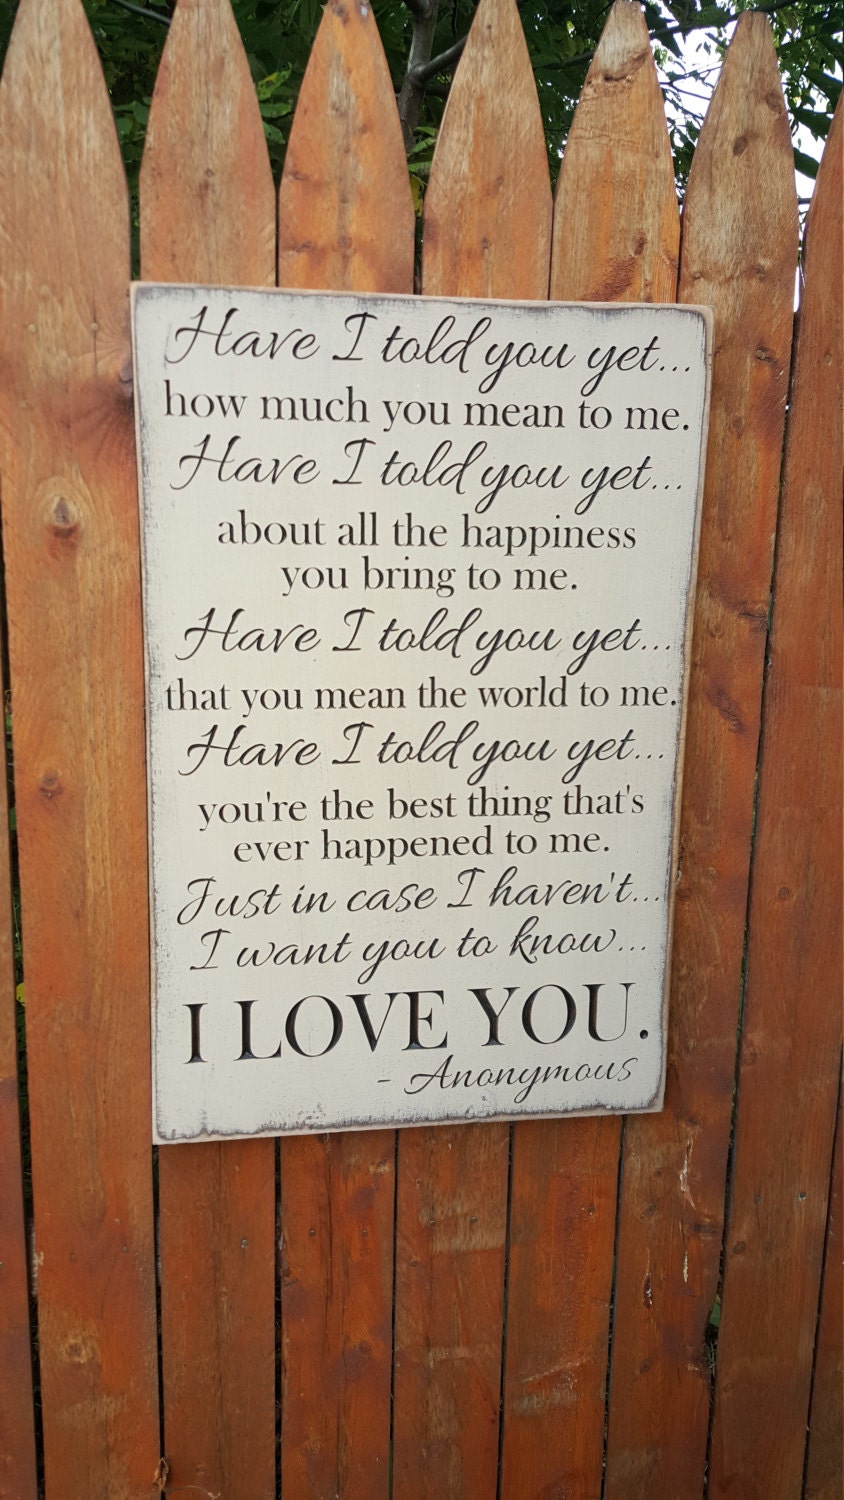 Have I told you yet...
how much you mean to me.
Have I told you yet...
about all the happiness
you bring to me.
Have I told you yet...
that you mean the world to me.
Have I told you yet...
you're the best thing that's
ever happened to me.
Just in case I haven't...
I want you to know...
I LOVE YOU.
- Anonymous